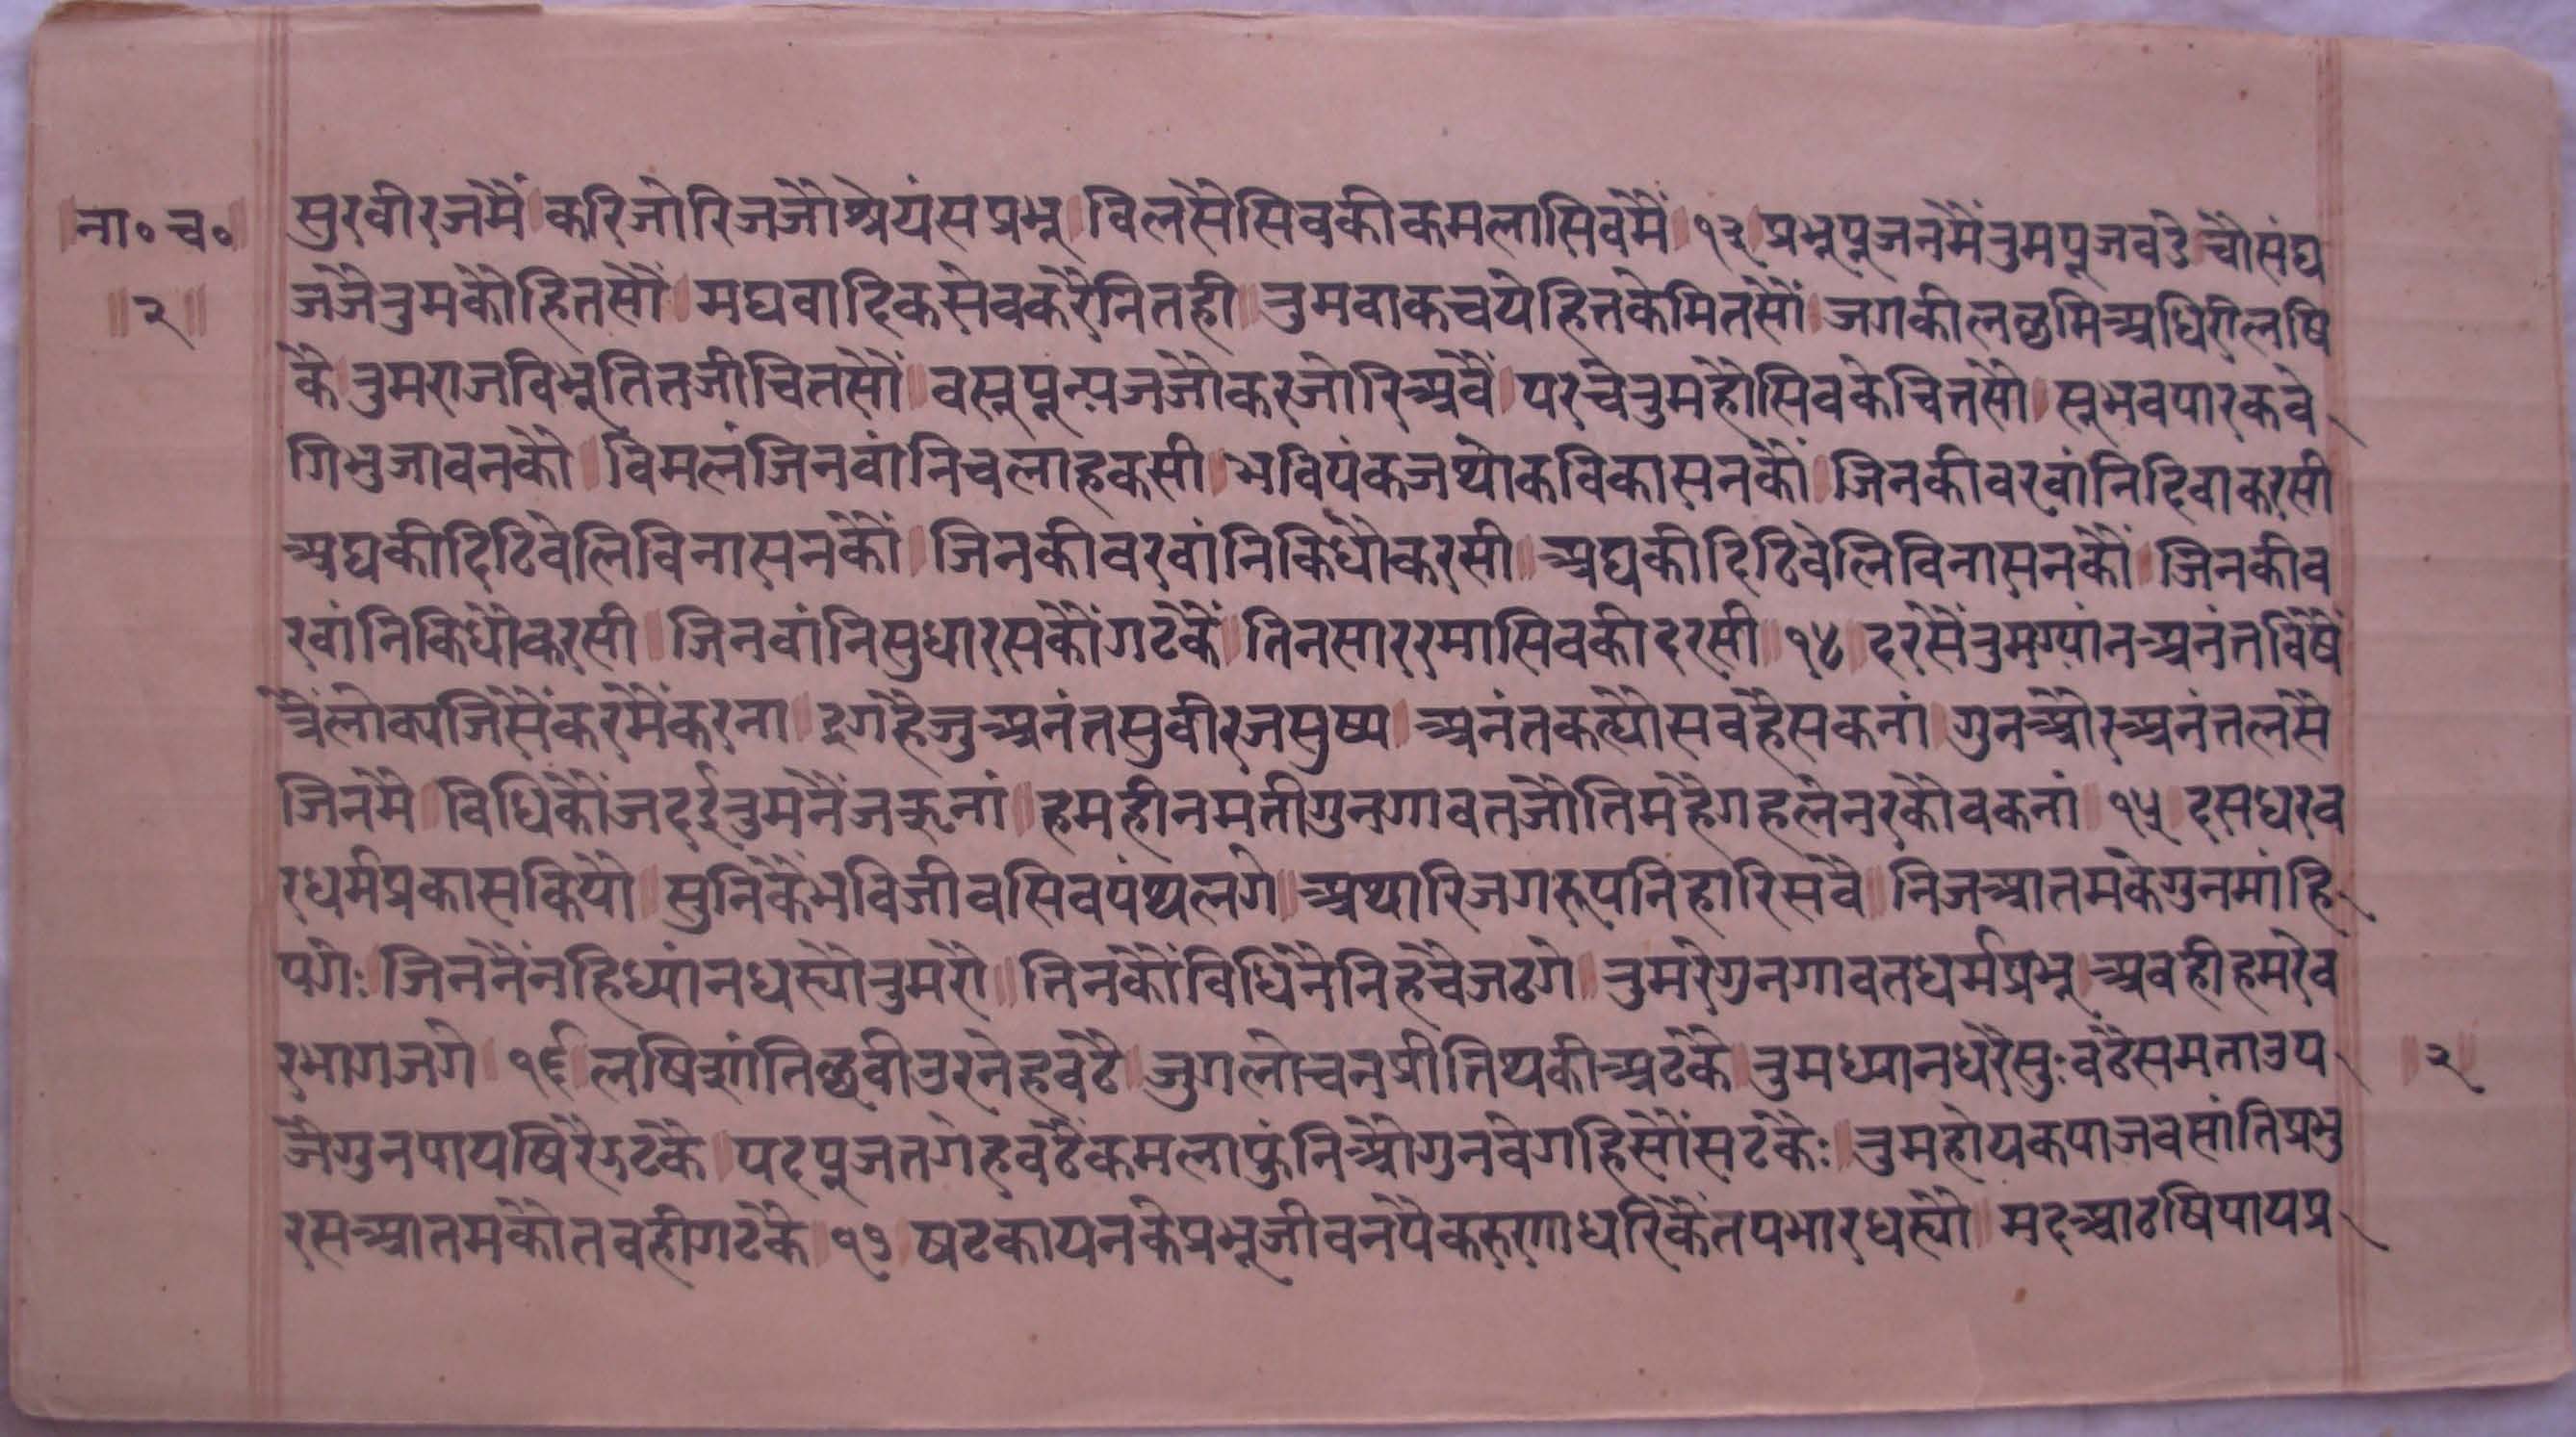 ना॰च॰
॥२॥
सुरवीरजमैं । करिजोरिजजौश्रेयंसप्रभू । विलसैसिवकीकमलासिवमैं । १३ । प्रभूपूजनमैंतुमपूजवडे । चौसंघ
जजैतुमकौहितसौं । मघवादिकसेवकरैनितही । तुमवाकचयेहित्तकेमितसौं । जगकीलछमिअथिरीलषि
कै । तुमराजविभूतितजीचितसौं । वसूपूज्यजजौकरजोरिअवैं । परचेतुमहौसिवकेचित्तसौ । सूभवपारकवे
गिभुजावनकौ । विमलंजिनवांनिचलाहकसी । भविपंकजथोकविकासनकौं । जिनकीवरवांनिदिवाकरसी
अघकीदिढिवेलिविनासनकौं । जिनकीवरवांनिकिधौकरसी ॥ अघकीदिढिवेलिविनासनकौं । जिनकीव
रवांनिकिधौकरसी । जिनवांनिसुधारसकौंगटकैं । तिनसाररमासिवकीदरसी । १४ । दरसैंतुमग्यांनअनंतविषैं
त्रैंलोक्यजिसैंकरमैंकरना । दृगहैजुअनंतसुवीरजसुष्य । अनंतकह्यौसवहैसकनां । गुनऔरअनंतलसै
जिनमै । विधिकौंजदईतुमनैंजकूनां । हमहीनमंतीगुनगावतजौतिमहैगहलेनरकौवकनां । १५ । दसधरव
रधर्मप्रकासकियौ । सुनिकैंभविजीवसिवपंथ्यलगे । अथारिजगरूपनिहारिसवै । निजआतमकेगुनमांहि
पगेः । जिननैंनहिध्यांनधस्यौतुमरौ । तिनकौंविधिनैनिहचैजठगे । तुमरेगुनगावतधर्मप्रभू । अवहीहमरेव
रभागजगे । १६ । लषिसांतिछवीउरनेहवढै । जुगलोचनप्रीतिथकीअटकै । तुमध्यानधरैसुःवढैसमताउप
जैगुनपायषिरैगटकै । पदपूजतगेहवढैंकमलाफुंनिऔगुनवेगहिसौंसटकैः । तुमहोयकपाजवसांतिप्रभु
रसआतमकौतवहीगटकै । १७ । षटकायनकेप्रभूजीवनपैकरुणाधरिकैंतपभारधस्यौ । मदआठषिपायप्र
२